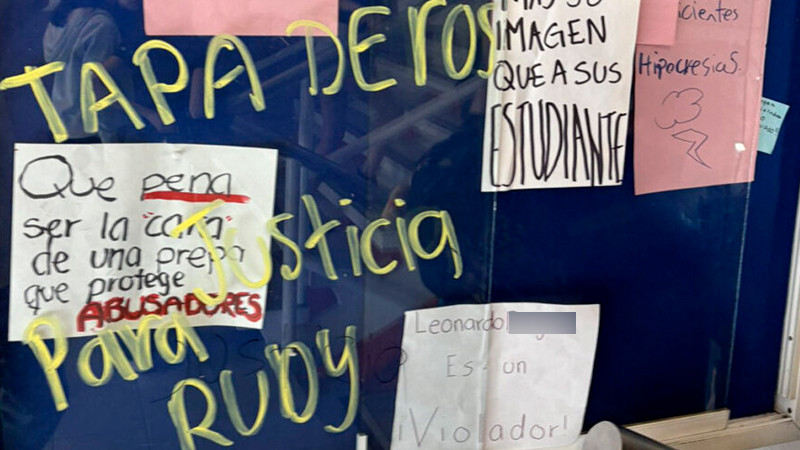 TAPA DEROS
IMAGEN
QUE A SUS
ESTUDIANTE
cientes
Hipocresias.
Que pena
ser la "cara"
de una prepa
que protege
ABUSADORES
Justicia
Para
RUDY
Leonardo
Es un
¡Violador!